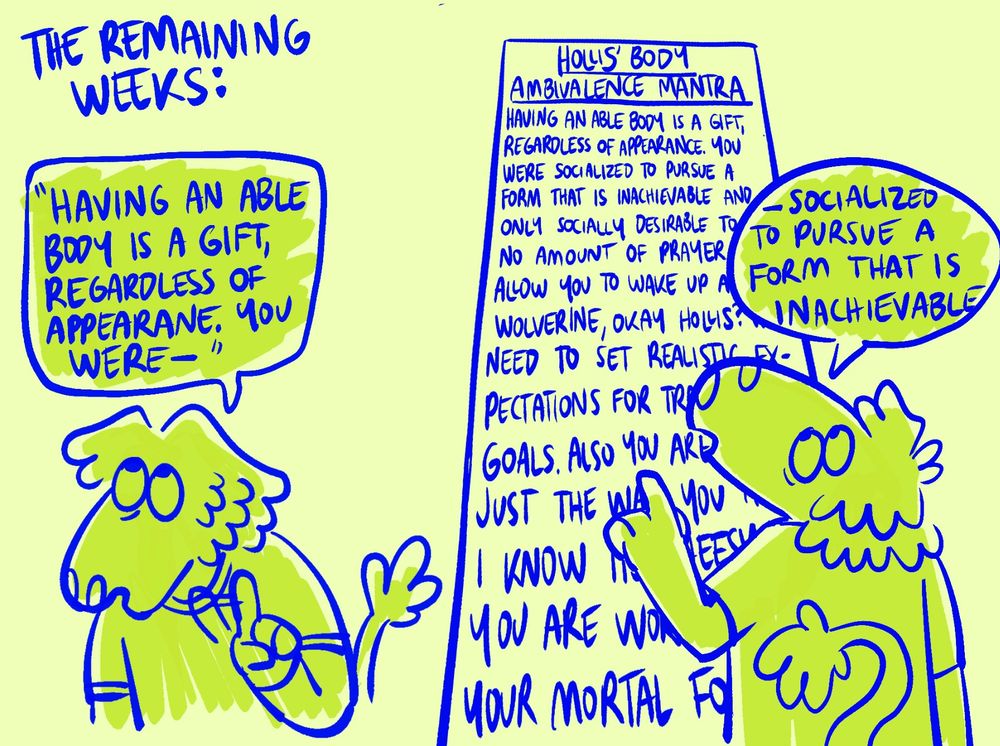 THE REMAINING
WEEKS:
"HAVING AN ABLE
BODY IS A GIFT,
REGARDLESS OF
APPEARANE. YOU
WERE— "
HOLLIS' BODY
AMBIVALENCE MANTRA
HAVING AN ABLE BODY IS A GIFT,
REGARDLESS OF APPEARANCE. YOU
WERE SOCIALIZED TO PURSUE A
FORM THAT IS INACHIEVABLE AND
ONLY SOCIALLY DESIRABLE TO
NO AMOUNT OF PRAYER
ALLOW YOU TO WAKE UP A
WOLVERINE, OKAY HOLLIS?
NEED TO SET REALISTIC EX-
PECTATIONS FOR
GOALS. ALSO YOU ARE
JUST THE WAY YOU
I KNOW
YOU ARE
YOUR MORTAL
— SOCIALIZED
TO PURSUE A
FORM THAT IS
INACHIEVABLE